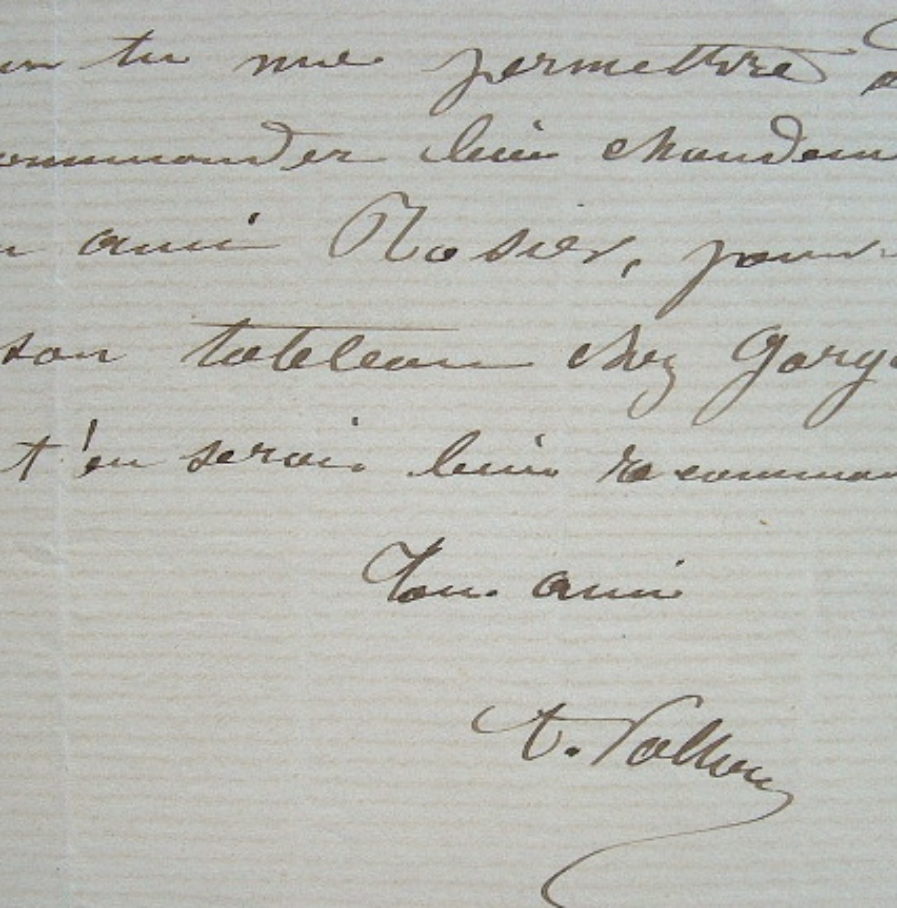 tu me permettre
commander bien chaudem
ami Rosier, pour
son tableau chez Gorg
t'en serai bien recomman
Ton ami
A. Vollon